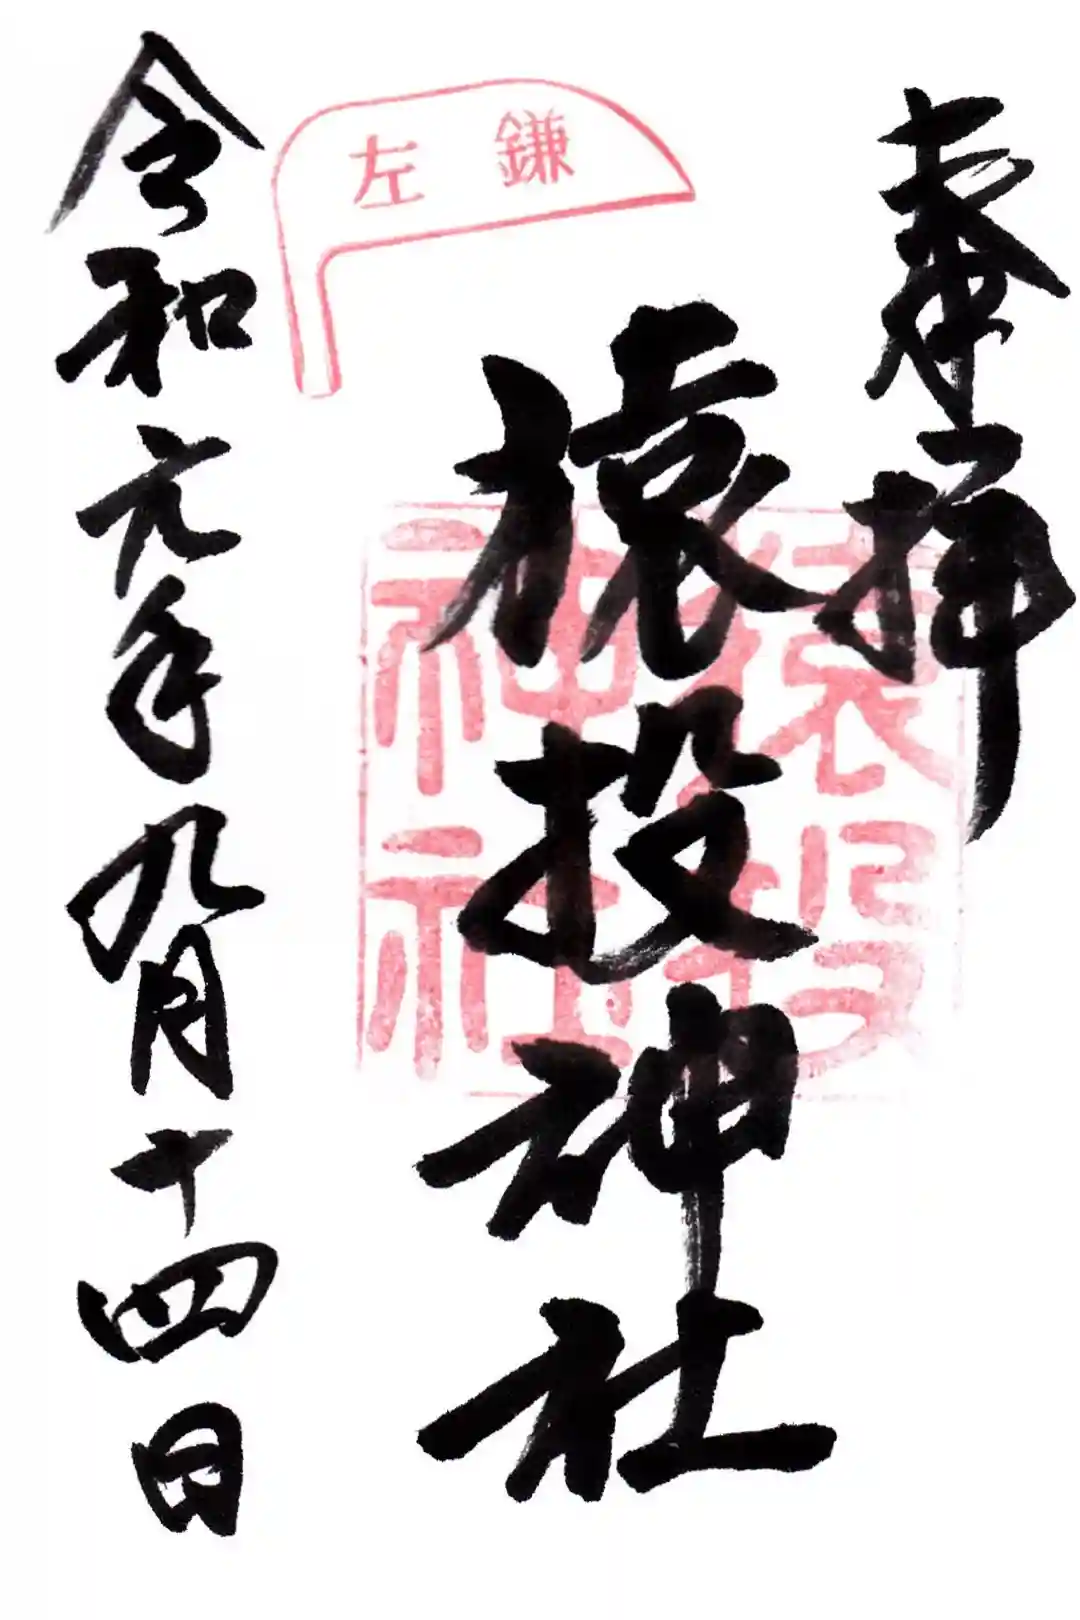 奉拝
猿投神社
猿投
神社
左鎌
令和元年九月十四日